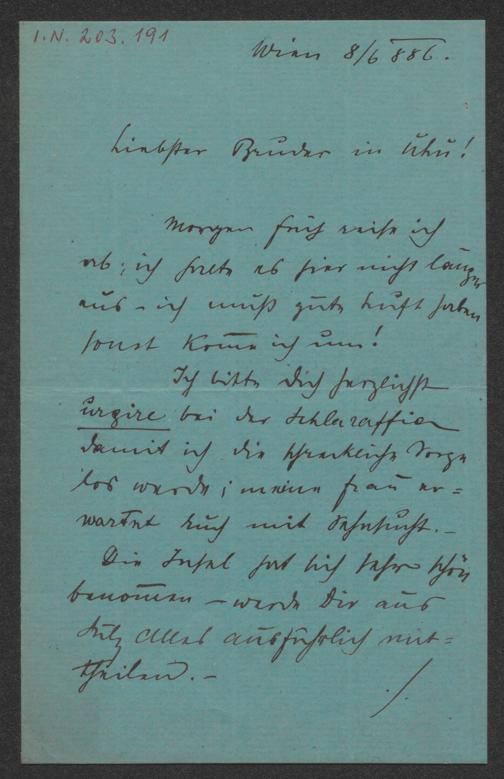 I.N. 203.191
Wien 8/6 886.
Liebster Bruder in Uhu!
Morgen früh reise ich
ab; ich halte es hier nicht länger
aus – ich muß gute Luft haben
sonst kom̅e ich um!
Ich bitte Dich herzlichst
urgire bei der Schlaraffia
damit ich die schreckliche Sorge
los werde; meine Frau er=
wartet auch mit Sehnsucht. –
Die Insel hat sich sehr schön
benom̅en – werde Dir aus
Sulz Alles ausführlich mit=
theilen. –
./.